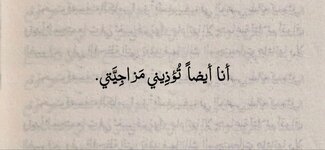 أنا أيضاً تُؤذِيني مَزاجِيَّتي.